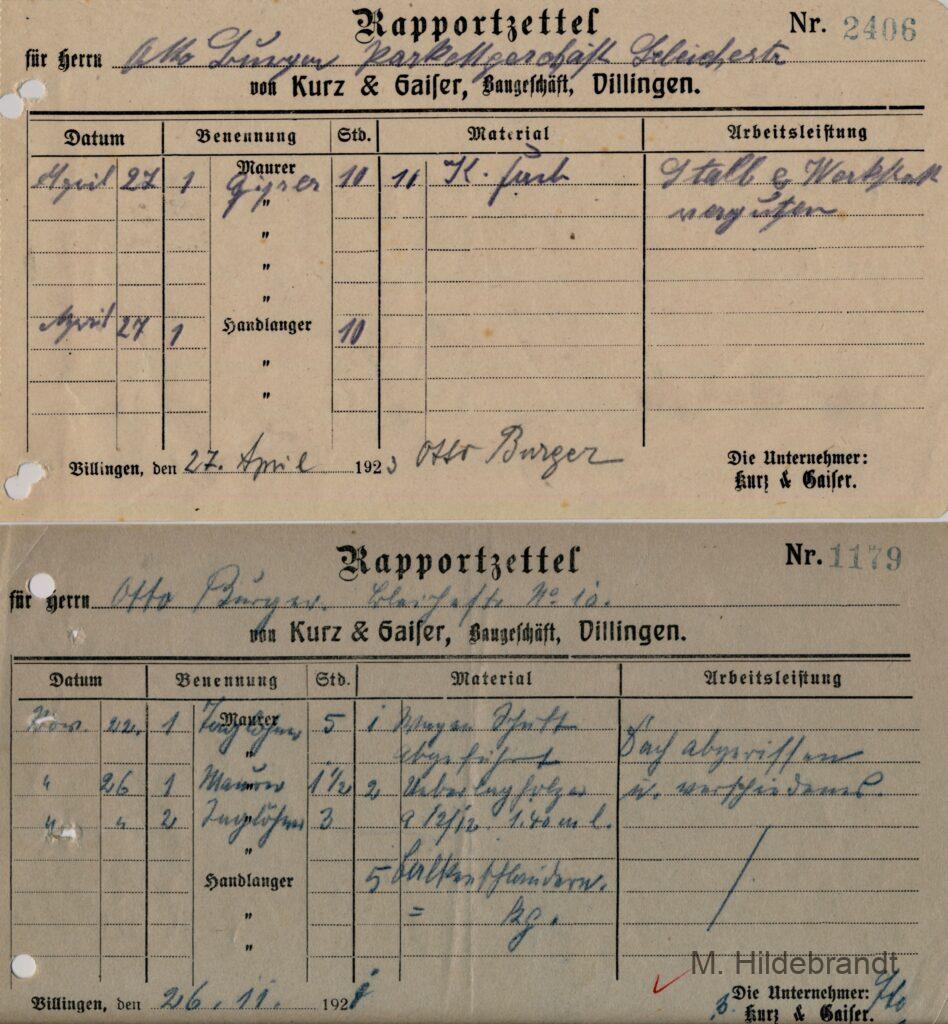 Rapportzettel Nr. 2406
für Herrn Otto Burger Parkettgeschäft Bleichestr
von Kurz & Gaiser, Baugeschäft, Villingen.
Datum Benennung Std. Material Arbeitsleistung
Maurer
April 27 1 10 11 K. Stall & Werkstatt
" verputzen
"
"
"
April 27 1 Handlanger 10
"
"
Villingen, den 27. April 1923 Otto Burger Die Unternehmer:
Kurz & Gaiser.
Rapportzettel Nr. 1179
für Herrn Otto Burger. No 10.
von Kurz & Gaiser, Baugeschäft, Villingen.
Datum Benennung Std. Material Arbeitsleistung
Nov. 22. 1 Maurer Taglöhner 5 1 Wagen Schutt
" abgeführt Dach abgerissen
" 26 1 Maurer 1 1/2 2 u. verschiedenes.
" " 2 Taglöhner 3 9 12/12 1.40 m l.
"
Handlanger 5
" = kg.
"
M. Hildebrandt
Villingen, den 26. 11. 192 Die Unternehmer:
Kurz & Gaiser.